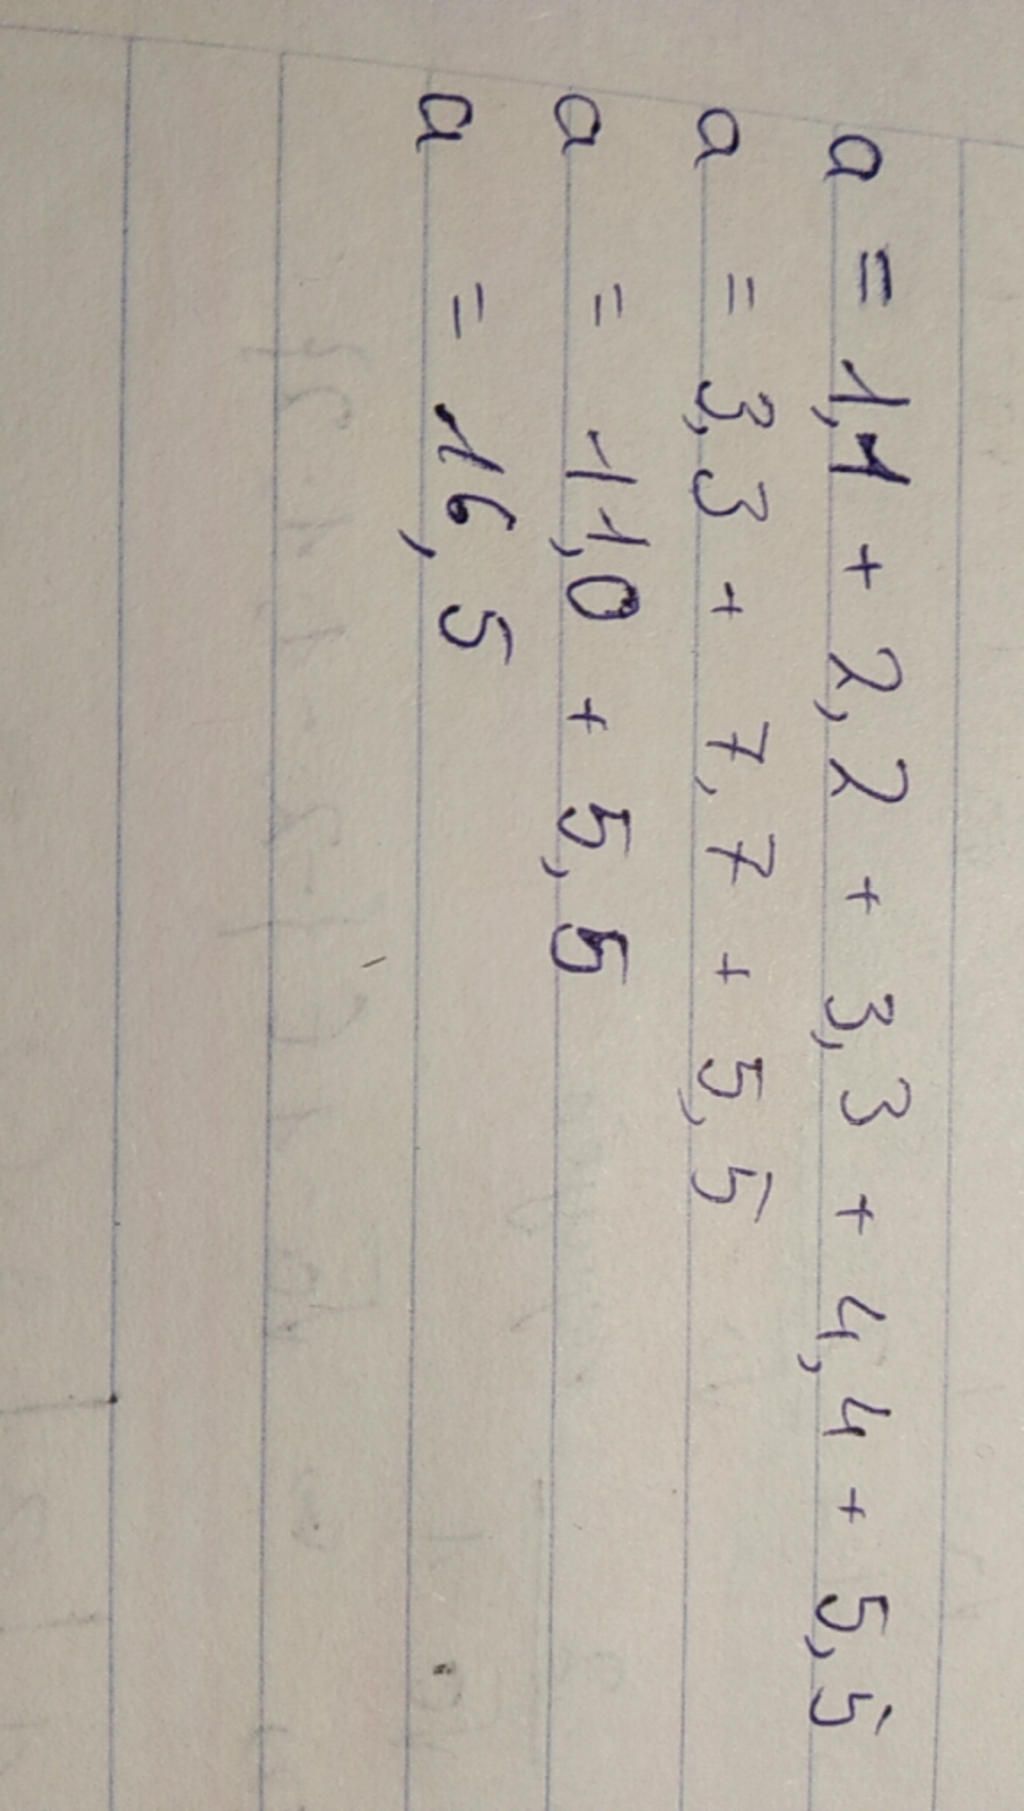 a = 1,1 + 2,2 + 3,3 + 4,4 + 5,5
a = 3,3 + 7,7 + 5,5
a = 11,0 + 5,5
a = 16,5